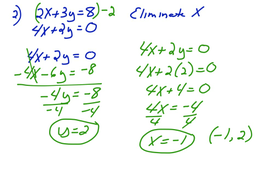 2) (2x+3y=8)-2 Eliminate X
4x+2y=0
4x+2y=0
-4x-6y=-8
-4y=-8
-4 -4
y=2
4x+2y=0
4x+2(2)=0
4x+4=0
4x=-4
4 4
x=-1 (-1,2)